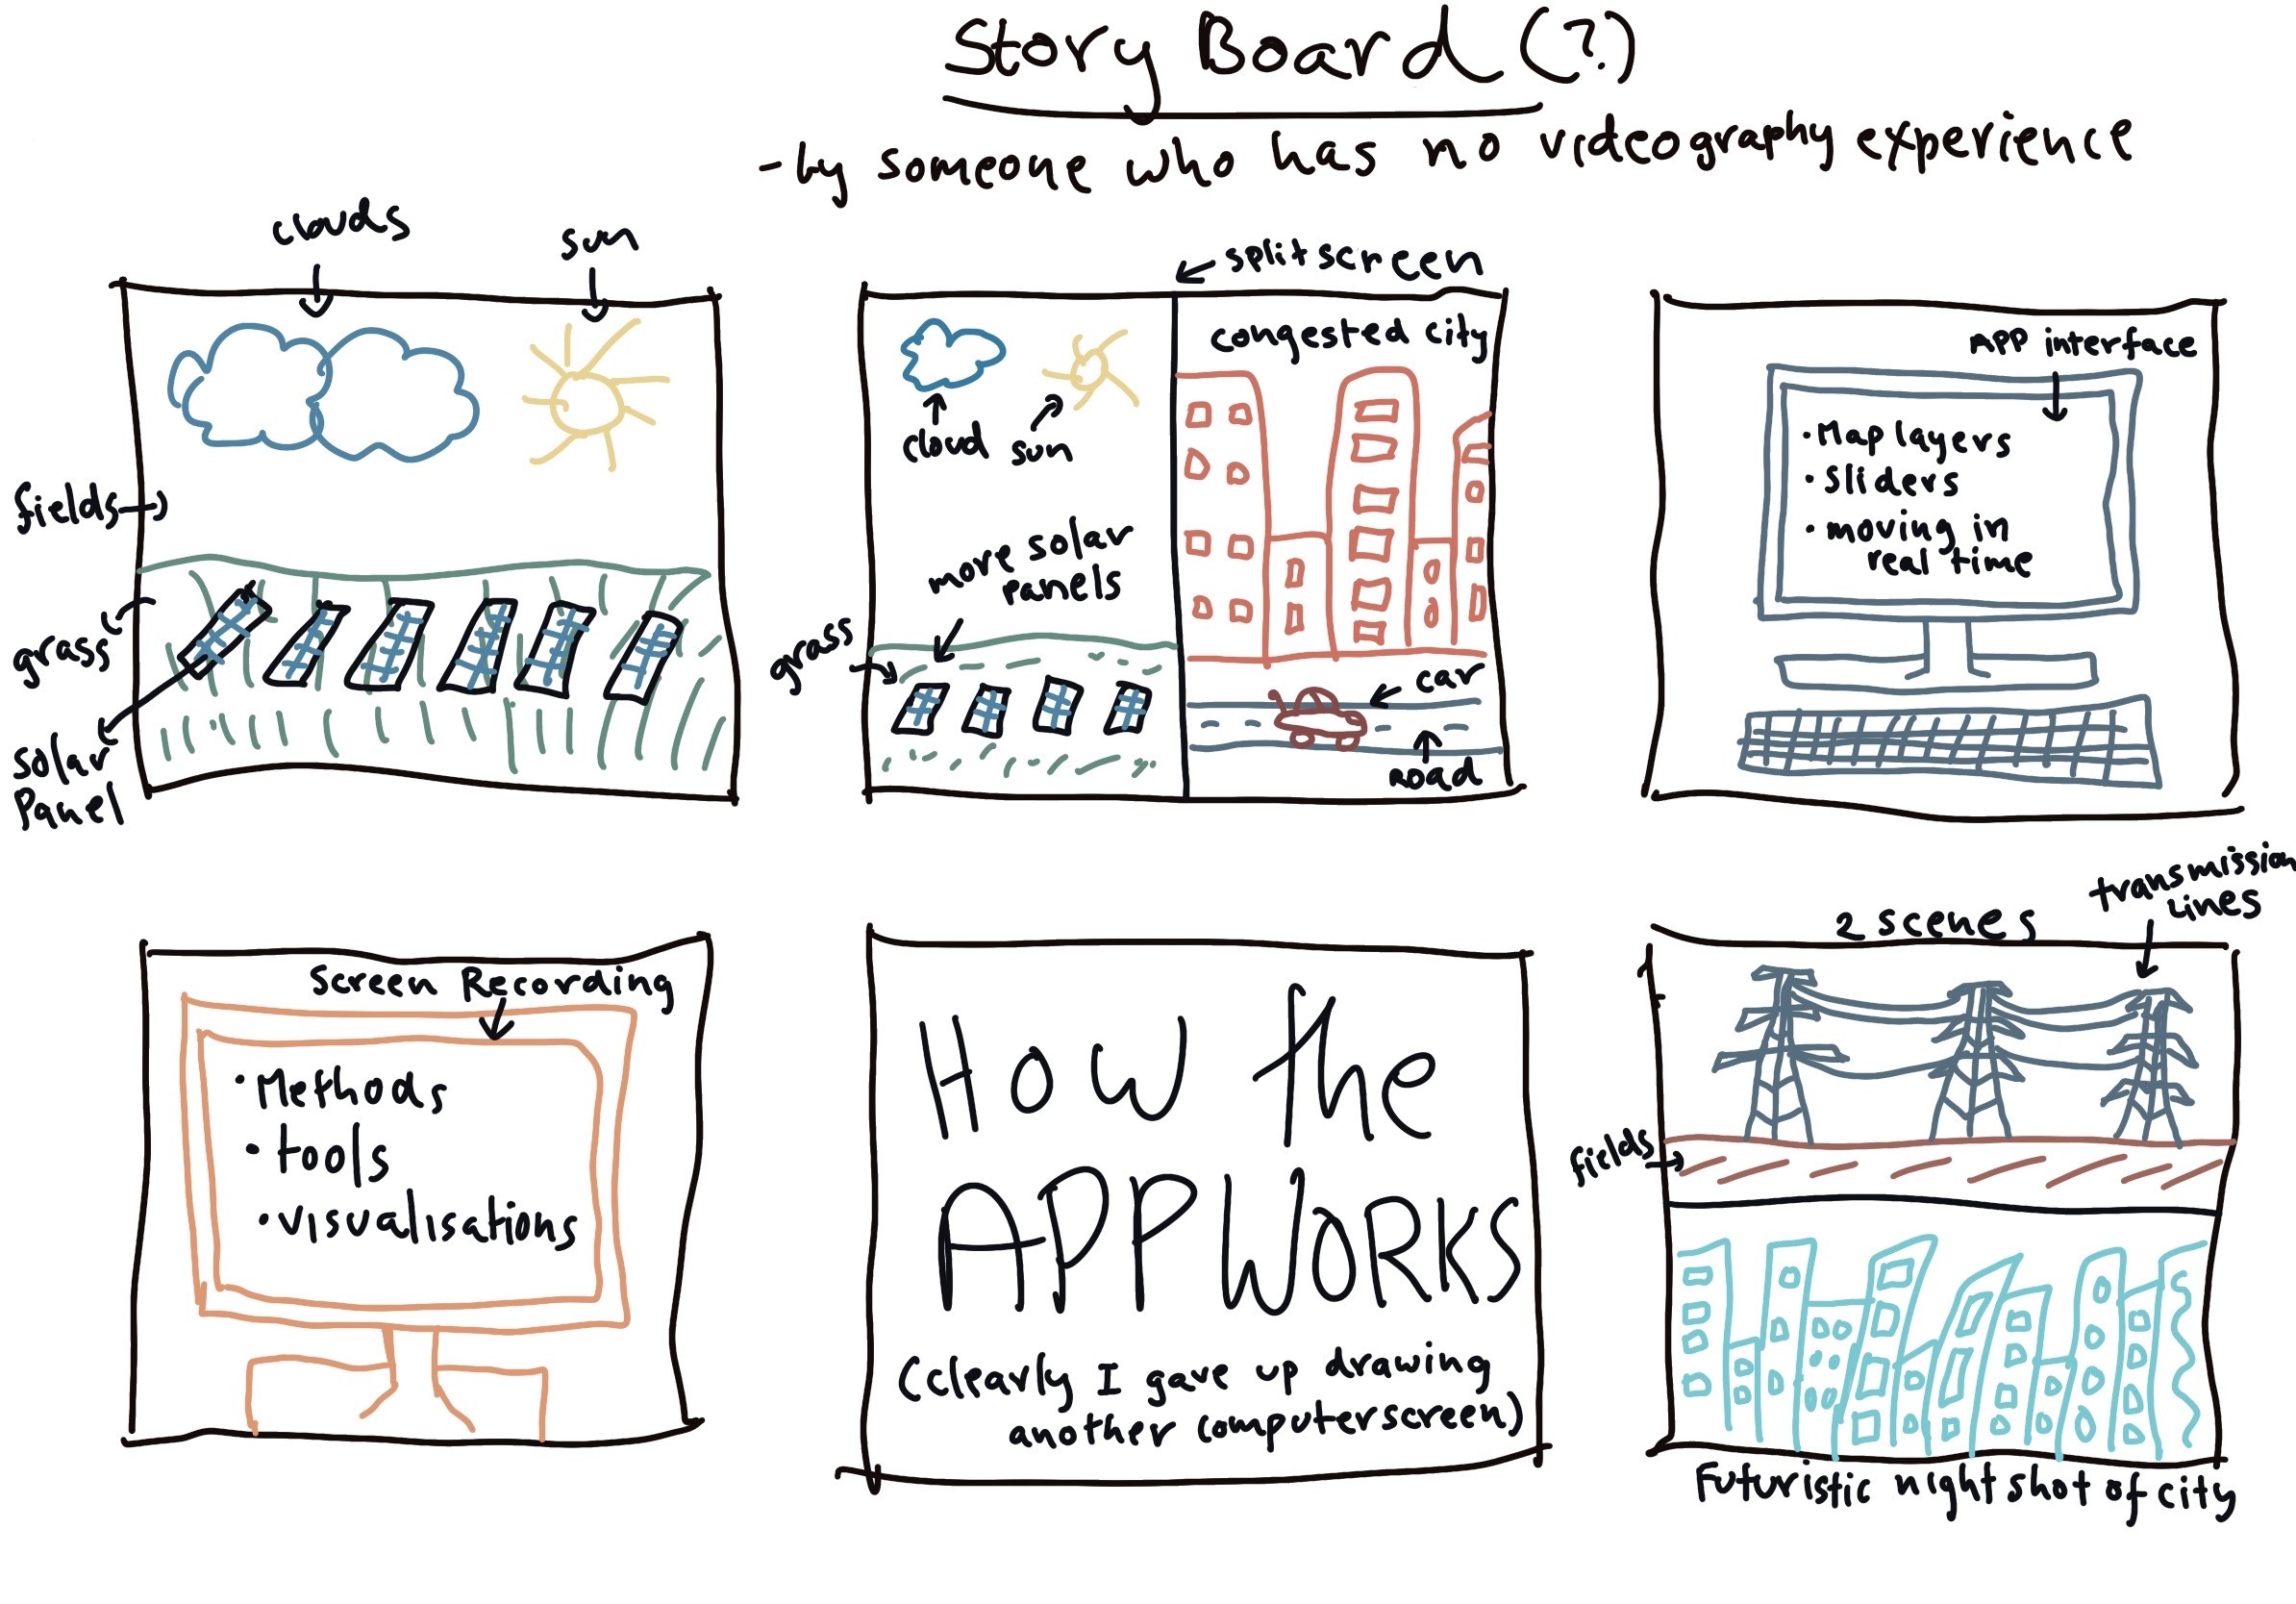 Story Board (?)
- by someone who has no videography experience
clouds
sun
fields
grass
solar
Panel
splitscreen
congested city
cloud
sun
more solar
panels
grass
car
Road
APP interface
• Map layers
• sliders
• moving in
real time
Screen Recording
• Methods
• tools
• visualisations
How the
APP WORKS
(clearly I gave up drawing
another computerscreen)
2 scenes
transmission
Lines
fields
Futuristic night shot of city